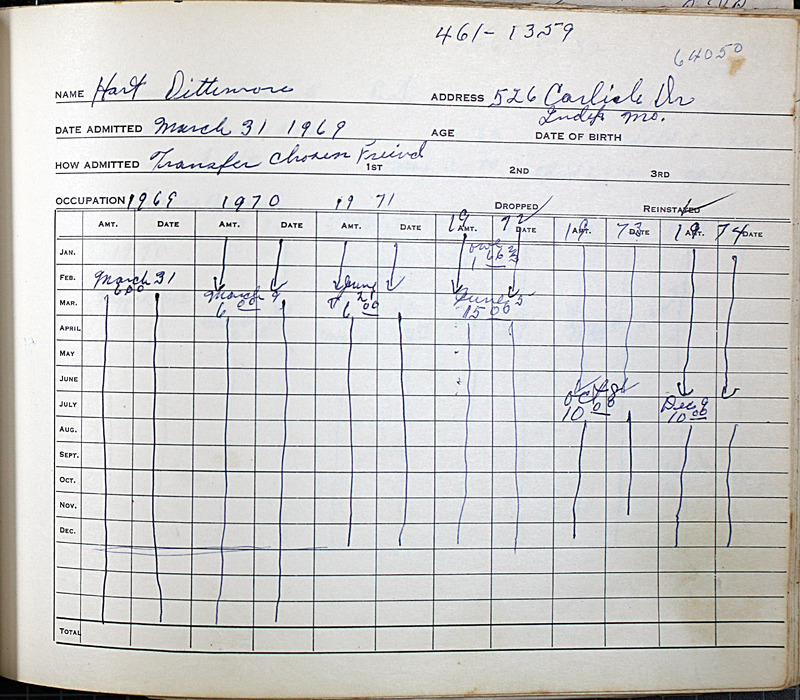 461-1359
64050
NAME Hart Dittemore ADDRESS 526 Carlisle Dr
Indep Mo.
DATE ADMITTED March 31 1969 AGE DATE OF BIRTH
HOW ADMITTED Transfer Chosen Freind 1ST 2ND 3RD
OCCUPATION 1969 1970 19 71 DROPPED REINSTATED
AMT. DATE AMT. DATE AMT. DATE 19 AMT. 72 DATE 19 AMT. 73 DATE 19 AMT. 74 DATE
JAN. 1 66
FEB. March 31
6 00
MAR. March 9 June 21 June 5
6 00 6 00 15 00
APRIL
MAY
JUNE
JULY Oct Dec 9
10 00 10 00
AUG.
SEPT.
OCT.
NOV.
DEC.
TOTAL